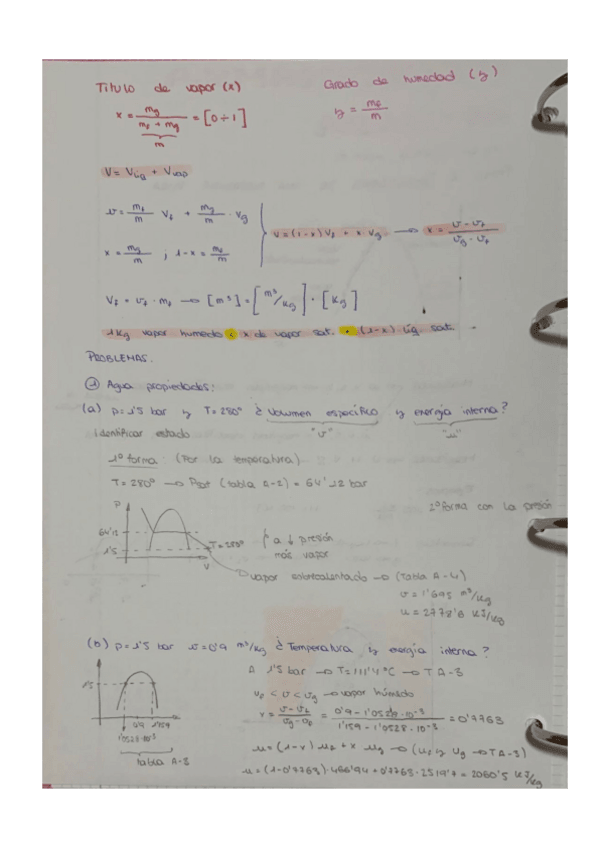 Título de vapor (x)
Grado de humedad (y)
x = mg / (mf + mg) = [0 ÷ 1]
m
y = mf / m
V = Vliq + Vvap
v = mf/m Vf + mg/m · Vg
x = mg/m ; 1-x = mf/m
v = (1-x) Vf + x Vg → x = (v - vf) / (vg - vf)
Vf = vf · mf → [m³] = [m³/kg] · [kg]
1 kg vapor humedo : x de vapor sat. · (1-x) líq. sat.
PROBLEMAS.
① Agua propiedades:
(a) p = 1'5 bar y T = 280° ¿ Volumen específico y energía interna?
identificar estado "v" "u"
1º forma: (Por la temperatura)
T = 280° → Psat (tabla A-2) = 64'12 bar
2º forma con la presión
P
64'12
1'5
T = 280°
V
a ↓ presión
más vapor
vapor sobrecalentado → (Tabla A-4)
v = 1'695 m³/kg
u = 2778'6 kJ/kg
(b) p = 1'5 bar v = 0'9 m³/kg ¿ Temperatura y energía interna?
A 1'5 bar → T = 111'4 °C → TA-3
vf < v < vg → vapor húmedo
x = (v - vf) / (vg - vf) = (0'9 - 1'0528·10⁻³) / (1'159 - 1'0528·10⁻³) = 0'7763
1'5
0'9 1'159
1'0528·10⁻³
tabla A-3
u = (1-x) uf + x ug → (uf y ug → TA-3)
u = (1-0'7763)·466'94 + 0'7763·2519'7 = 2060'5 kJ/kg